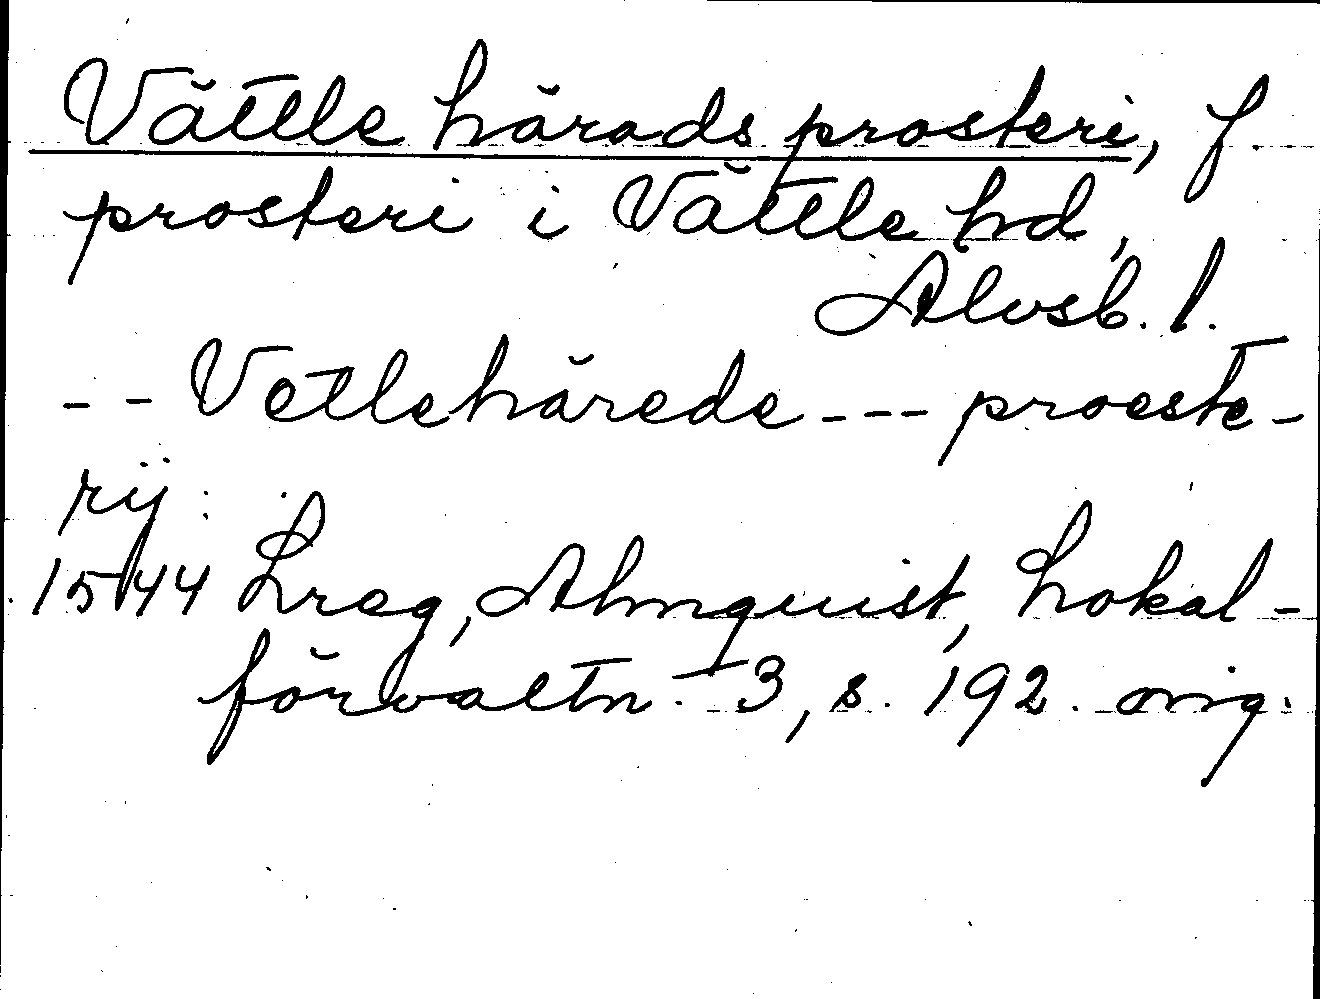 Vättle härads prosteri, f.
prosteri i Vättle hd,
Älvsb. l.
-- Vetlehärede --- proeste-
rij:
1544 Lreg, Almquist, Lokal-
förvaltn. 3, s. 192. orig.